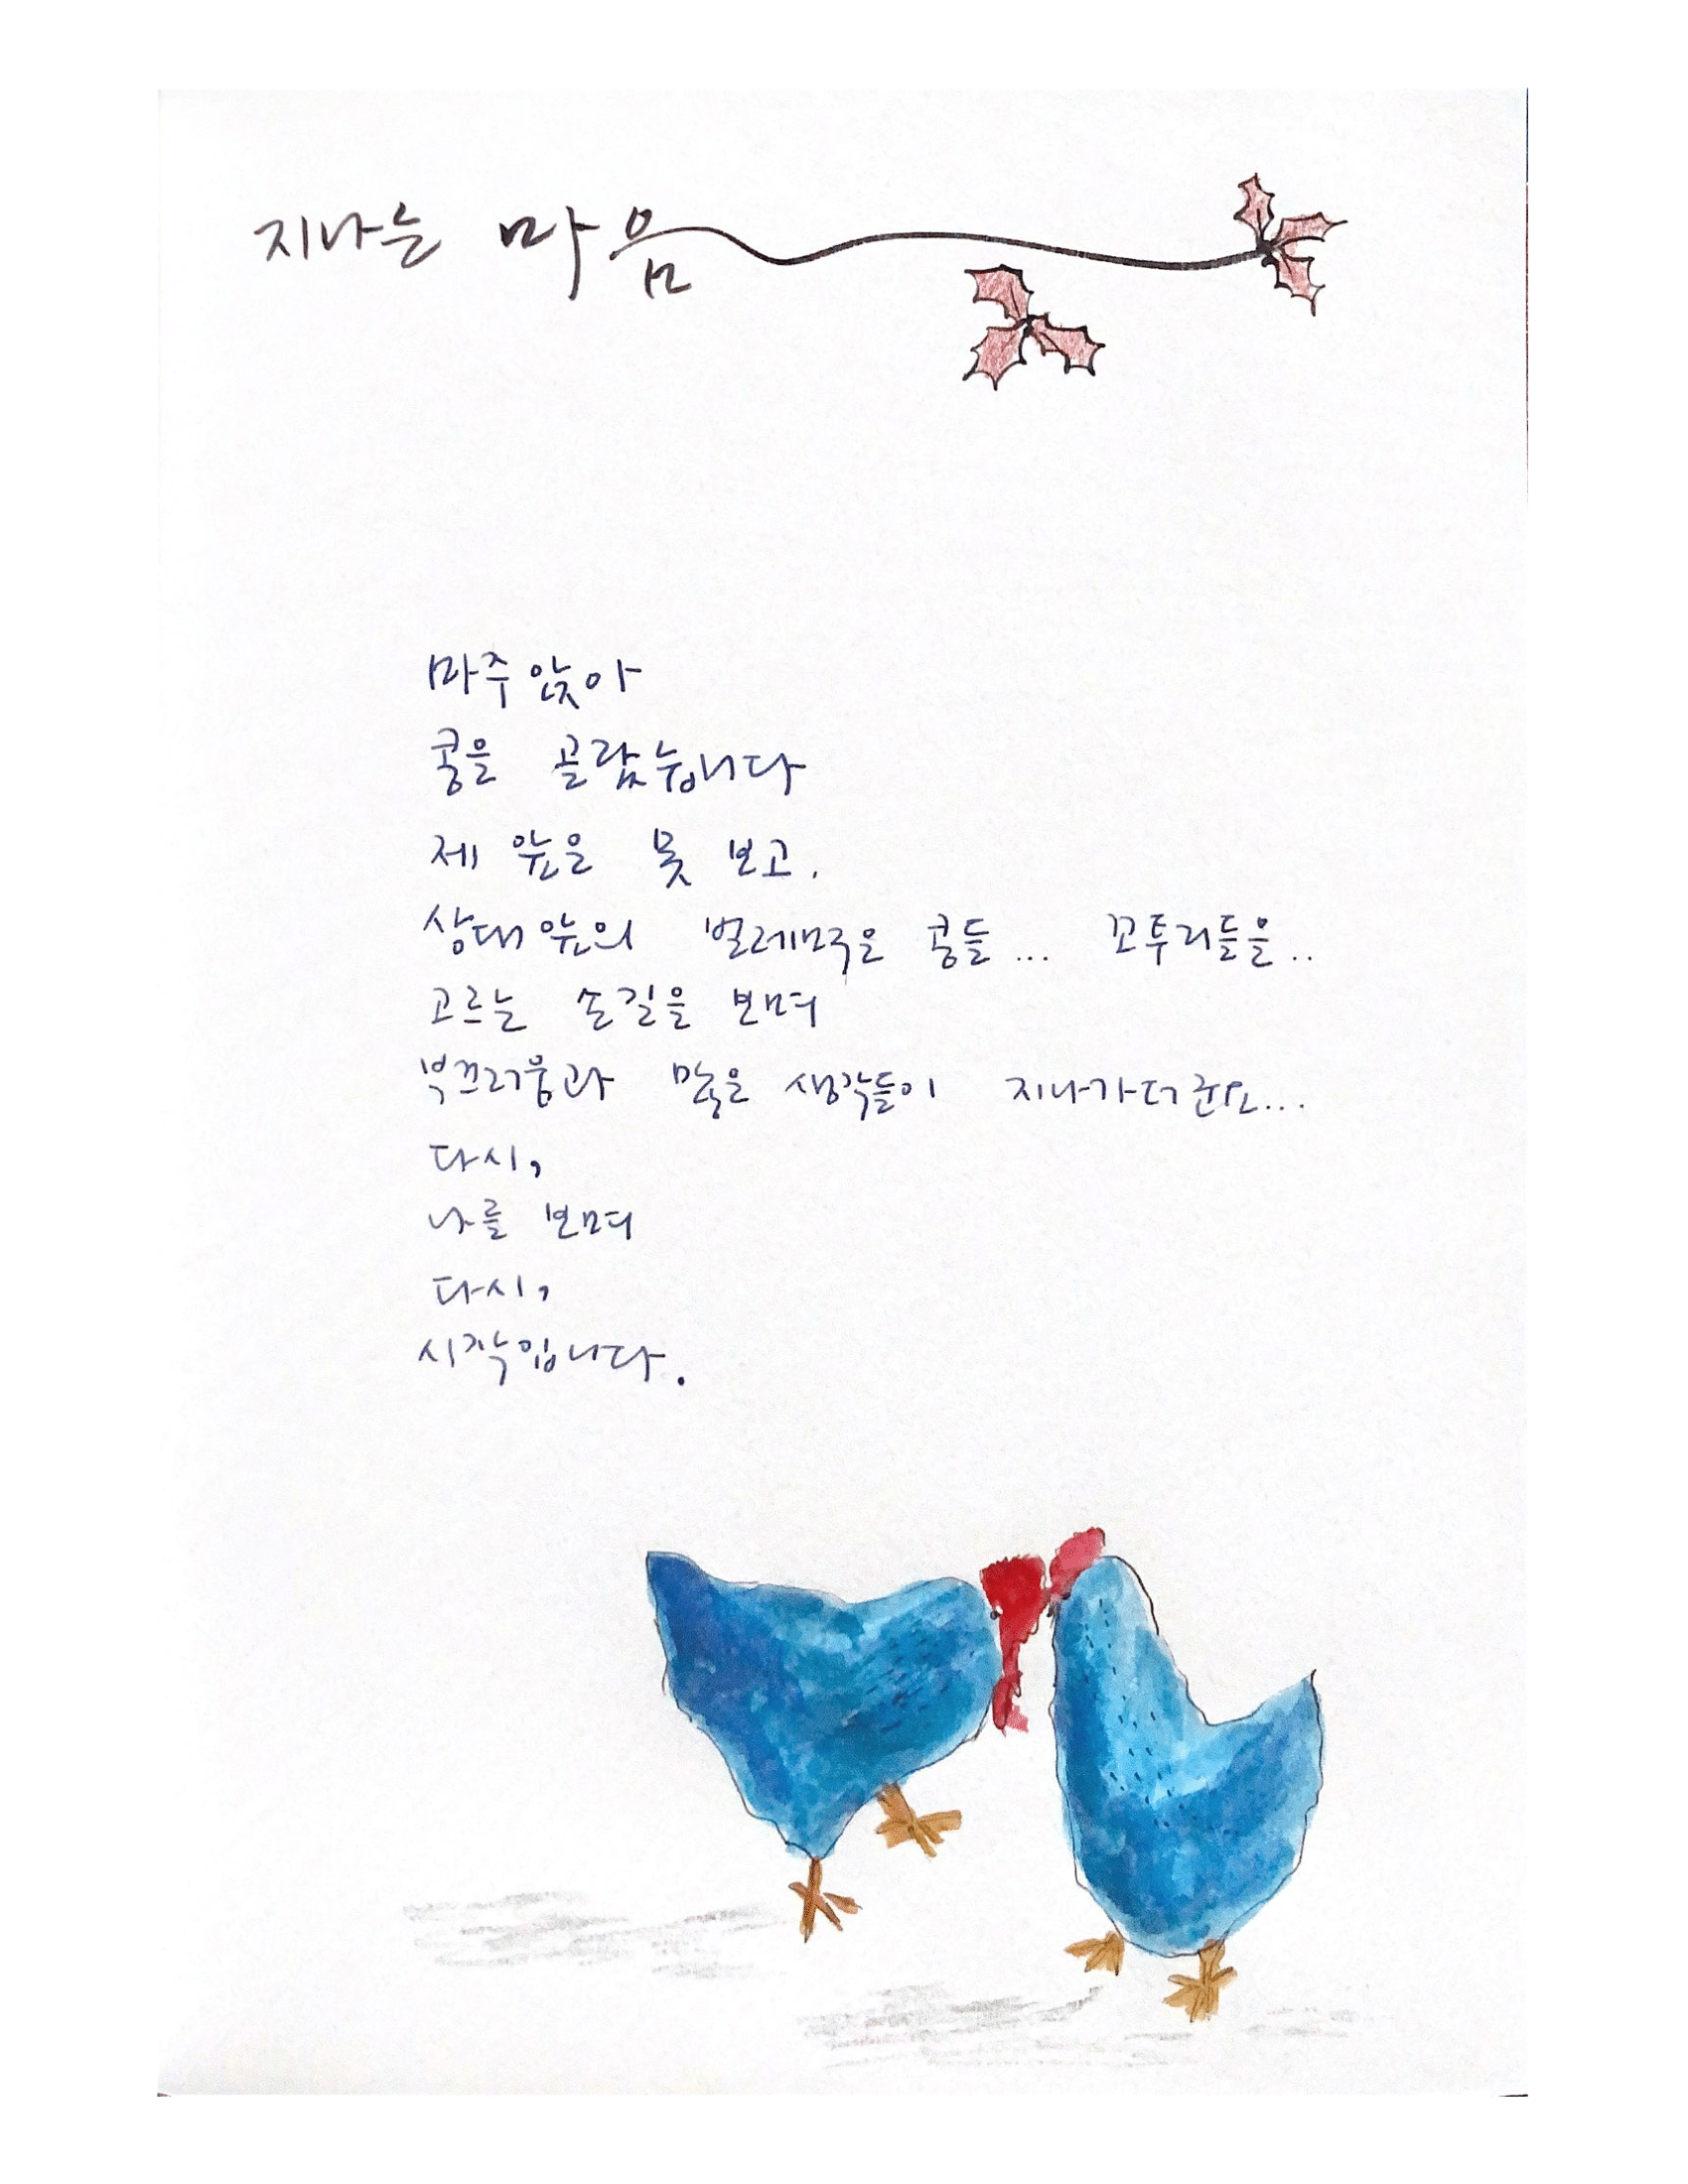 지나는 마음
마주앉아
콩을 골랐습니다
제 앞은 못 보고,
상대앞의 벌레먹은 콩들... 꼬투리들을..
고르는 손길을 보며
부끄러움과 많은 생각들이 지나가더군요...
다시,
나를 보며
다시,
시작입니다.